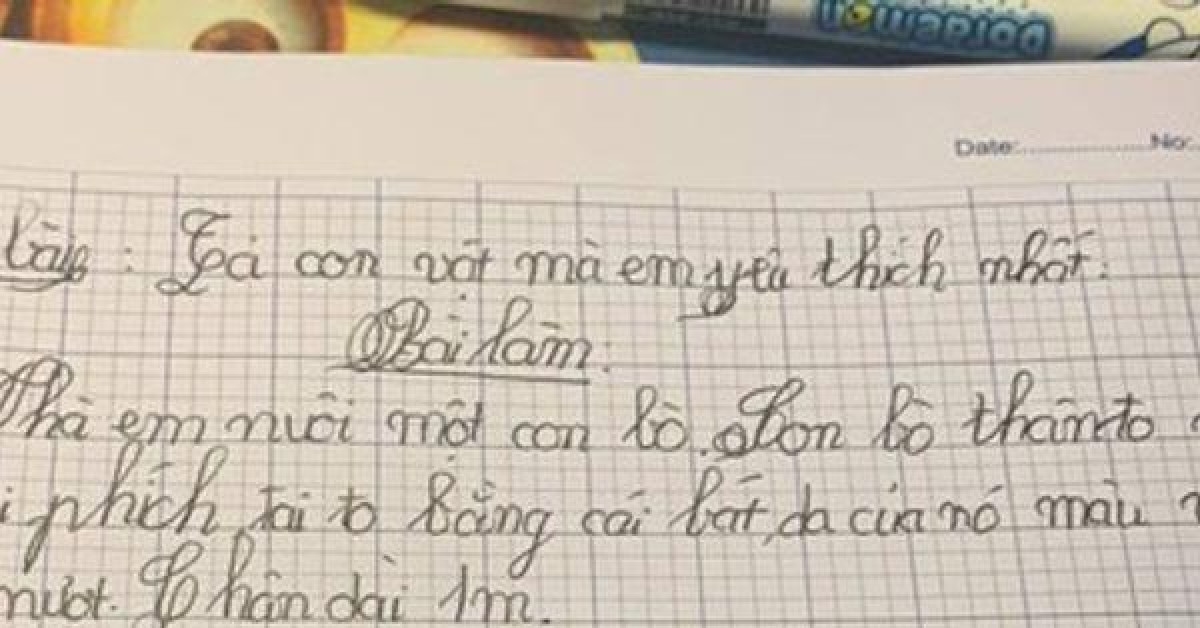 Doraemon
Date: No:
bài : Tả con vật mà em yêu thích nhất.
Bài làm.
Nhà em nuôi một con bò. Con bò thân to
phích, tai to bằng cái bát, da của nó màu
mượt. Chân dài 1m.